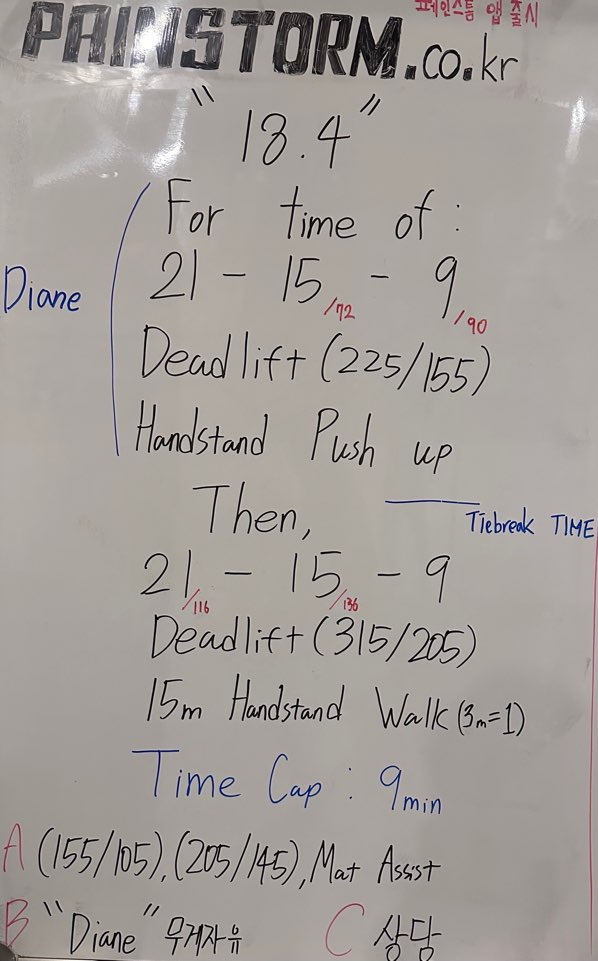 페인스톰 앱 출시
PAINSTORM.co.kr
"18.4"
For time of :
Diane
21 - 15 - 9
/72 /90
Deadlift (225/155)
Handstand Push up
Tiebreak TIME
Then,
21 - 15 - 9
/116 /136
Deadlift (315/205)
15m Handstand Walk (3m=1)
Time Cap : 9min
A (155/105), (205/145), Mat Assist
B "Diane" 무게자유 C 상담